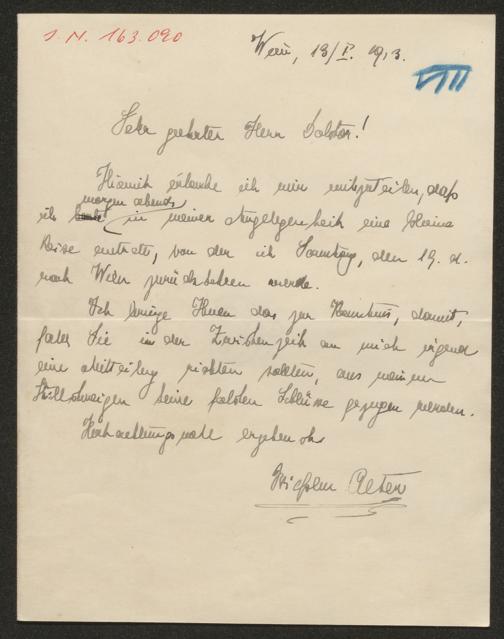 J. N. 163.090
Wien, 13/I. 1913.
VII
Sehr geehrter Herr Doktor!
Hiemit erlaube ich mir mitzuteilen, daß
morgen abends
ich in meiner Angelegenheit eine kleine
Reise antrete, von der ich Sonntag, den 19. d.
nach Wien zurückkehren werde.
Ich bringe Ihnen das zur Kenntnis, damit,
falls Sie in der Zwischenzeit an mich irgend
eine Mitteilung richten sollten, aus meinem
Stillschweigen keine falschen Schlüsse gezogen werden.
Hochachtungsvoll ergebenst